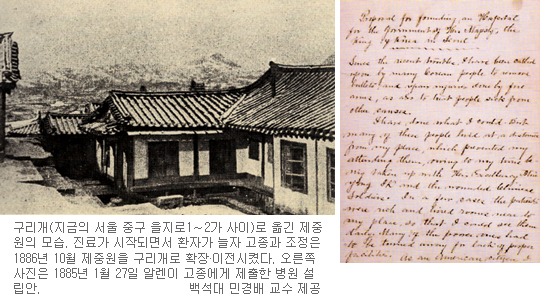 Proposal for founding an Hospital
for the Government of His Majesty, the
King of Korea in Seoul
Since the recent trouble, I have been called
upon by many Corean people to remove
bullets and repair injuries done by fire
arms, as also to treat people sick from
other causes.
I have done what I could. But
many of these people lived at a distance
from my place, which prevented my
attending them, owing to my time be-
ing taken up with His Excellency Min
Yong Ik and the wounded Chinese
Soldiers. In a few cases the patients
were rich and hired rooms near to
my place, so that I could see them
daily. Many of the poorer ones had
to be turned away for lack of proper
facilities. As an American citizen I
구리개(지금의 서울 중구 을지로1~2가 사이)로 옮긴 제중
원의 모습. 진료가 시작되면서 환자가 늘자 고종과 조정은
1886년 10월 제중원을 구리개로 확장·이전시켰다. 오른쪽
사진은 1885년 1월 27일 알렌이 고종에게 제출한 병원 설
립안.
백석대 민경배 교수 제공